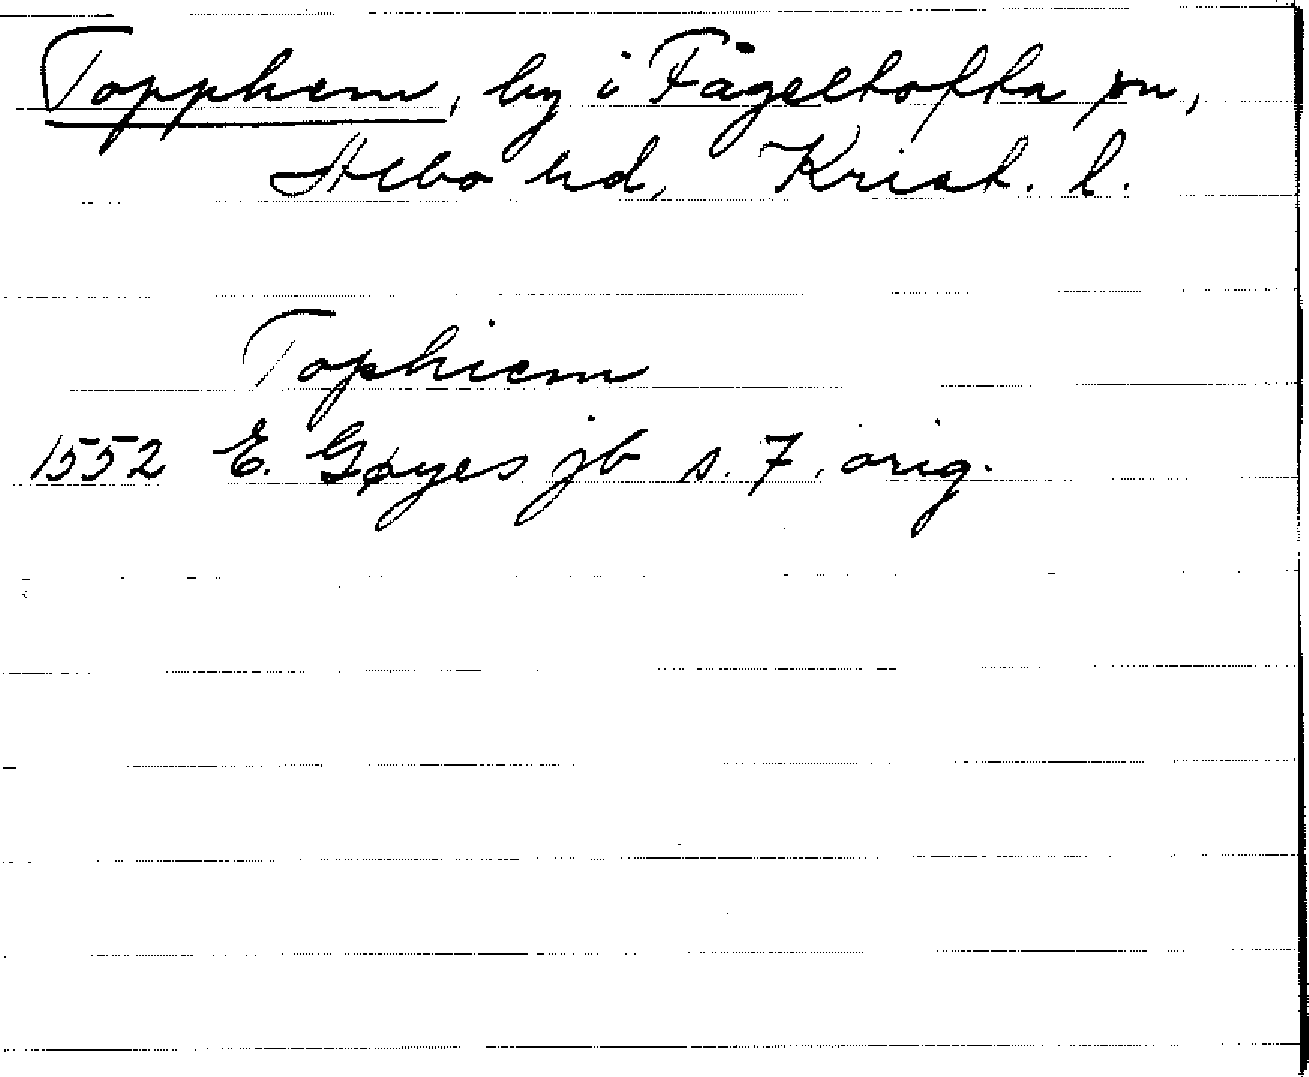 Topphem, by i Fågeltofta sn,
Albo hd, Krist. l.
Tophiem
1552 E. Gøyes jb s. 7. orig.